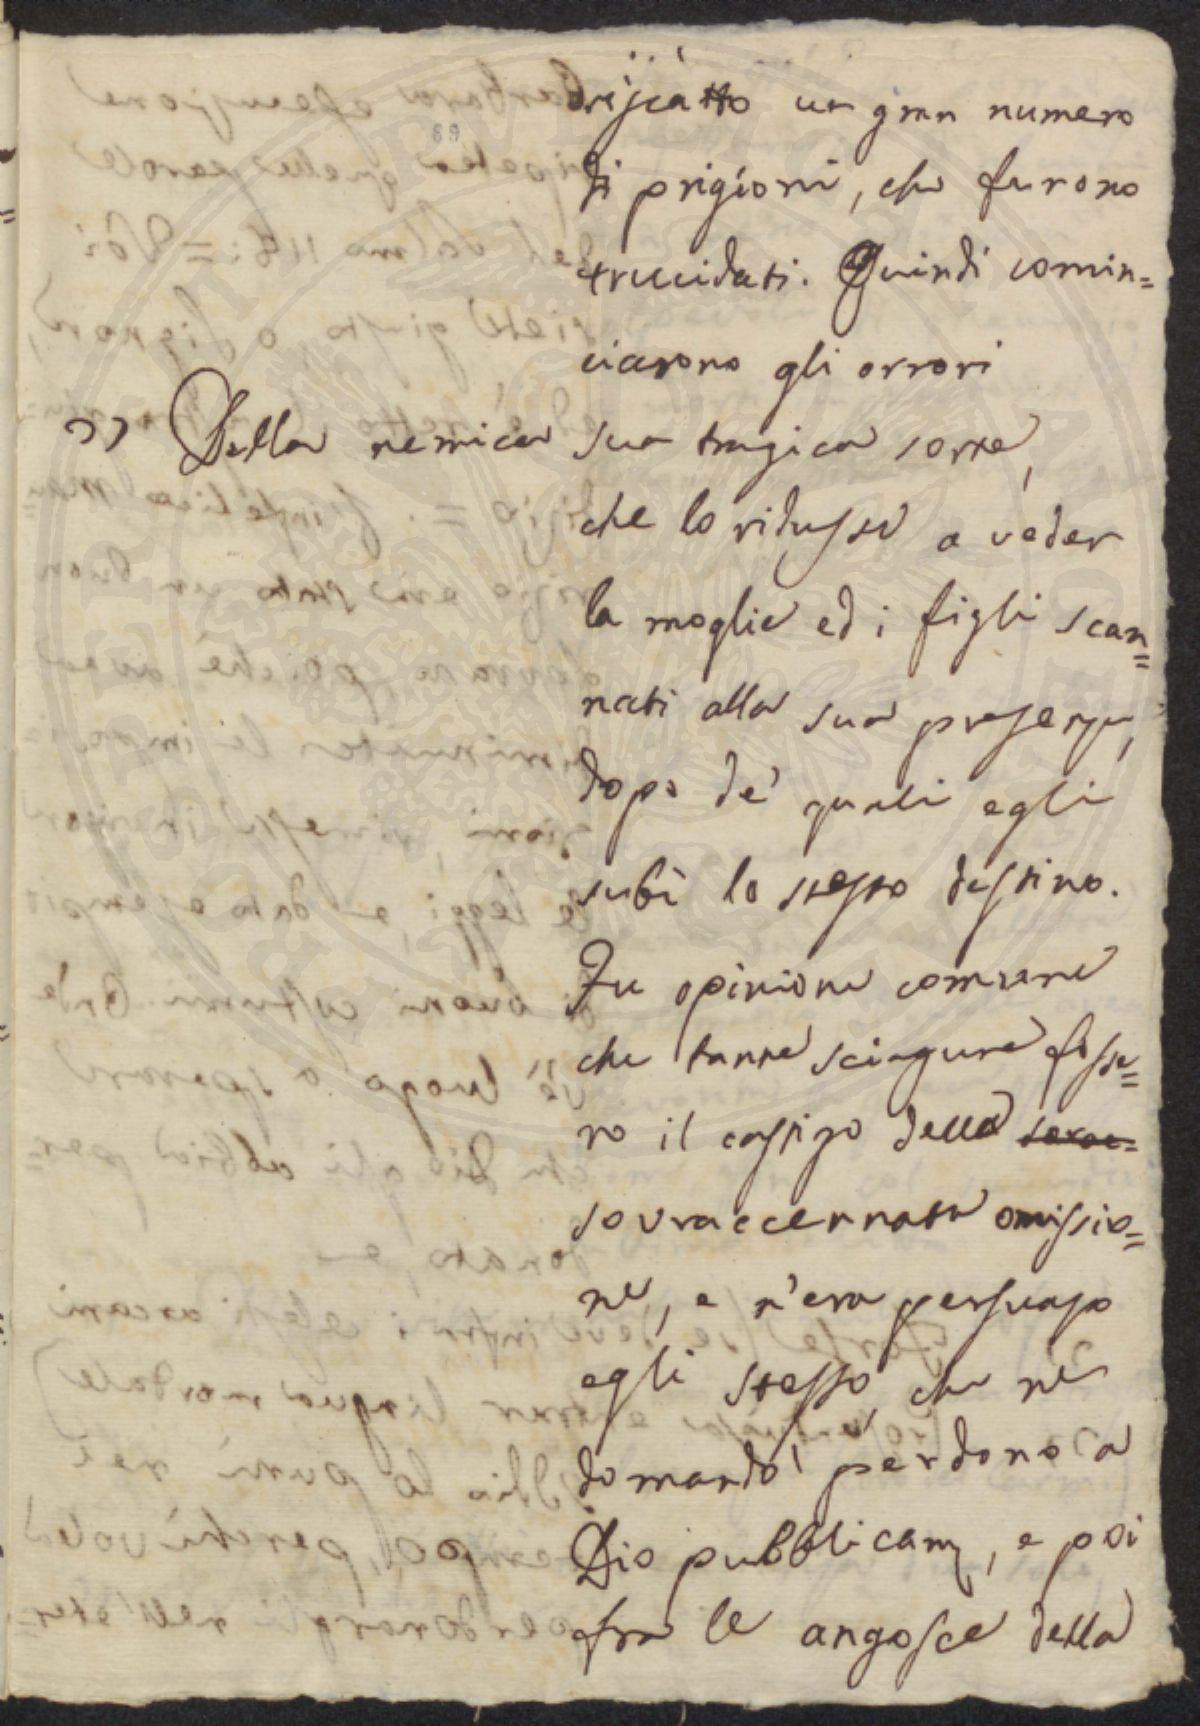 riscatto un gran numero
di prigioni, che furono
trucidati. Quindi comin=
ciarono gli orrori
Della nemica sua tragica sorte,
che lo ridusse a veder
la moglie ed i figli scan=
nati alla sua presenza,
dopo de' quali egli
subì lo stesso destino.
Fu opinione comune
che tante sciagure fosse=
ro il castigo della
sovraccennata omissio=
ne, e n'era persuaso
egli stesso, che ne
domandò perdono a
Dio pubblicam, e poi
fra le angosce della